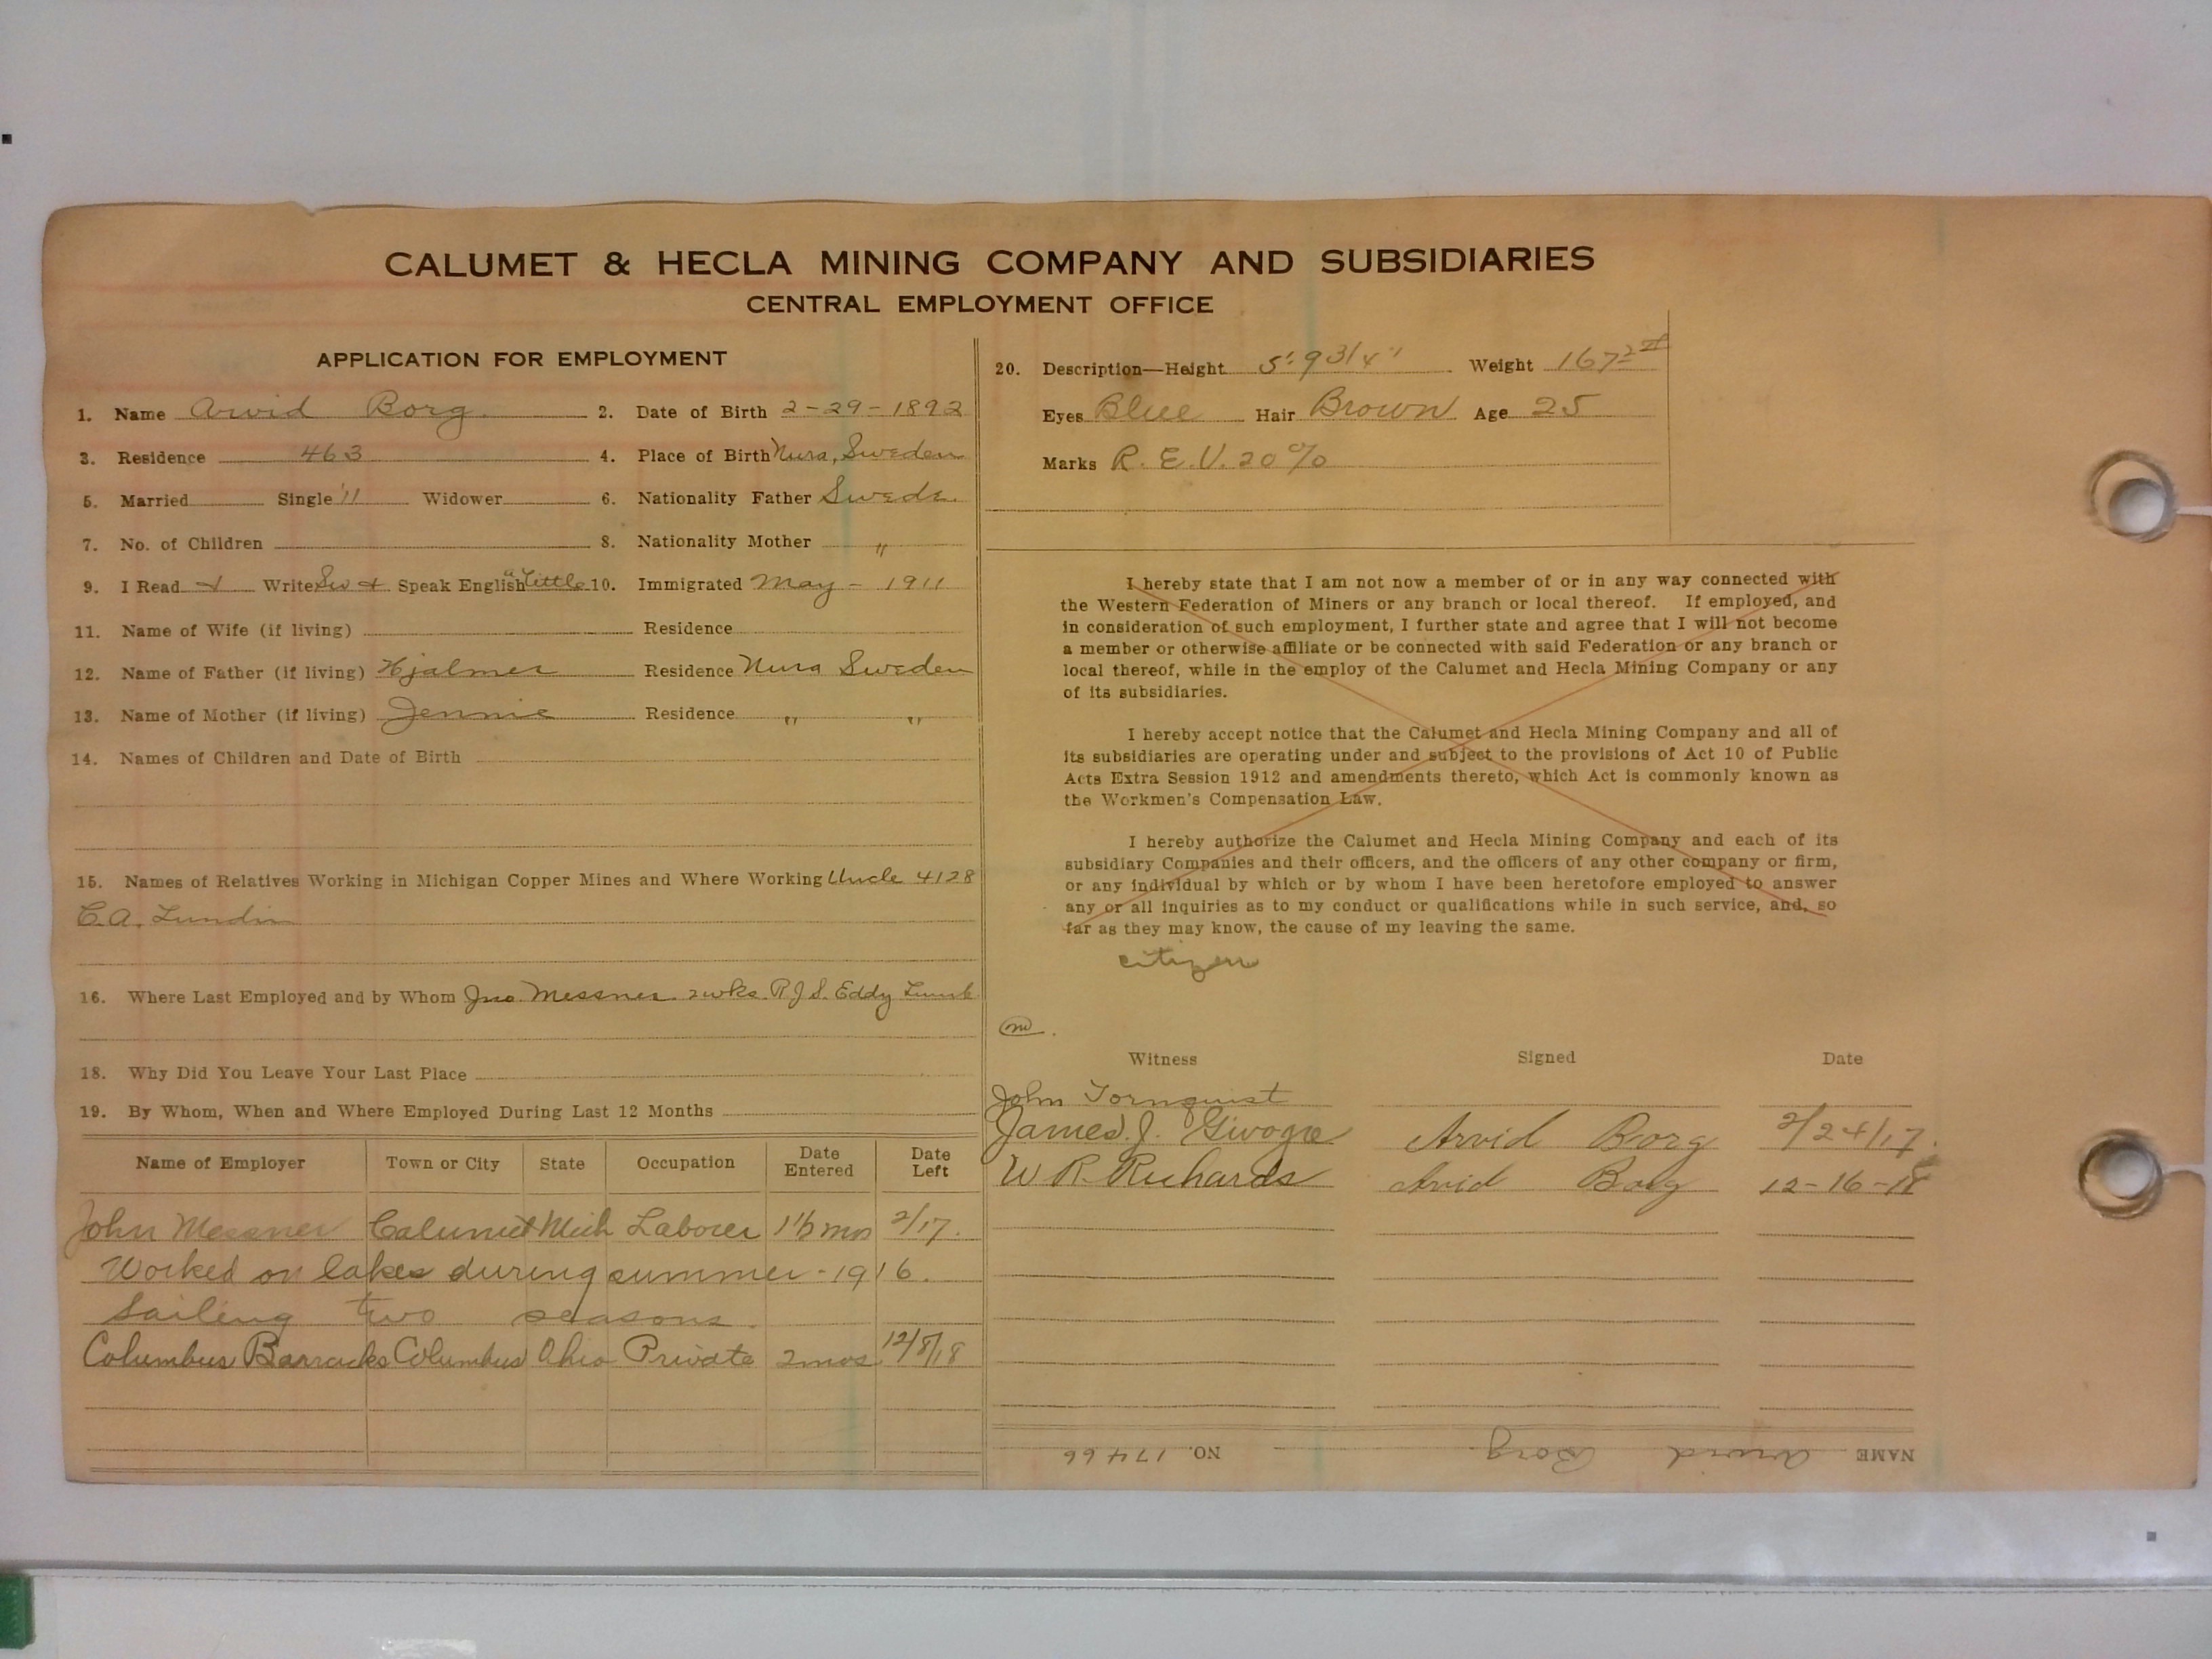 CALUMET & HECLA MINING COMPANY AND SUBSIDIARIES
CENTRAL EMPLOYMENT OFFICE
APPLICATION FOR EMPLOYMENT
1. Name Arvid Borg 2. Date of Birth 2-29-1892
3. Residence 463 4. Place of Birth Nura, Sweden
5. Married Single "11 Widower 6. Nationality Father Swede
7. No. of Children 8. Nationality Mother "
9. I Read & Write Sw & Speak English a little 10. Immigrated May - 1911
11. Name of Wife (if living) Residence
12. Name of Father (if living) Hjalmer Residence Nura Sweden
13. Name of Mother (if living) Jennie Residence " "
14. Names of Children and Date of Birth
15. Names of Relatives Working in Michigan Copper Mines and Where Working Uncle 4128
C.A. Lundin
16. Where Last Employed and by Whom Jno. Messner 2wks. R.J.S. Eddy Lumb
18. Why Did You Leave Your Last Place
19. By Whom, When and Where Employed During Last 12 Months
Name of Employer Town or City State Occupation Date Entered Date Left
John Messner Calumet Mich Laborer 1½ mos 2/17.
Worked on lakes during summer - 1916.
Sailing two seasons.
Columbus Barracks Columbus Ohio Private 2mos 12/8/18
20. Description—Height 5'. 9 3/4" Weight 167
Eyes Blue Hair Brown Age 25
Marks R. E. V. 20%
I hereby state that I am not now a member of or in any way connected with
the Western Federation of Miners or any branch or local thereof. If employed, and
in consideration of such employment, I further state and agree that I will not become
a member or otherwise affiliate or be connected with said Federation or any branch or
local thereof, while in the employ of the Calumet and Hecla Mining Company or any
of its subsidiaries.
I hereby accept notice that the Calumet and Hecla Mining Company and all of
its subsidiaries are operating under and subject to the provisions of Act 10 of Public
Acts Extra Session 1912 and amendments thereto, which Act is commonly known as
the Workmen's Compensation Law.
I hereby authorize the Calumet and Hecla Mining Company and each of its
subsidiary Companies and their officers, and the officers of any other company or firm,
or any individual by which or by whom I have been heretofore employed to answer
any or all inquiries as to my conduct or qualifications while in such service, and, so
far as they may know, the cause of my leaving the same.
citizen
Witness Signed Date
John Tornquist
James. J. Arvid Borg 2/24/17.
W R. Richards Arvid Borg 12-16-18
NAME Arvid Borg. NO. 17466